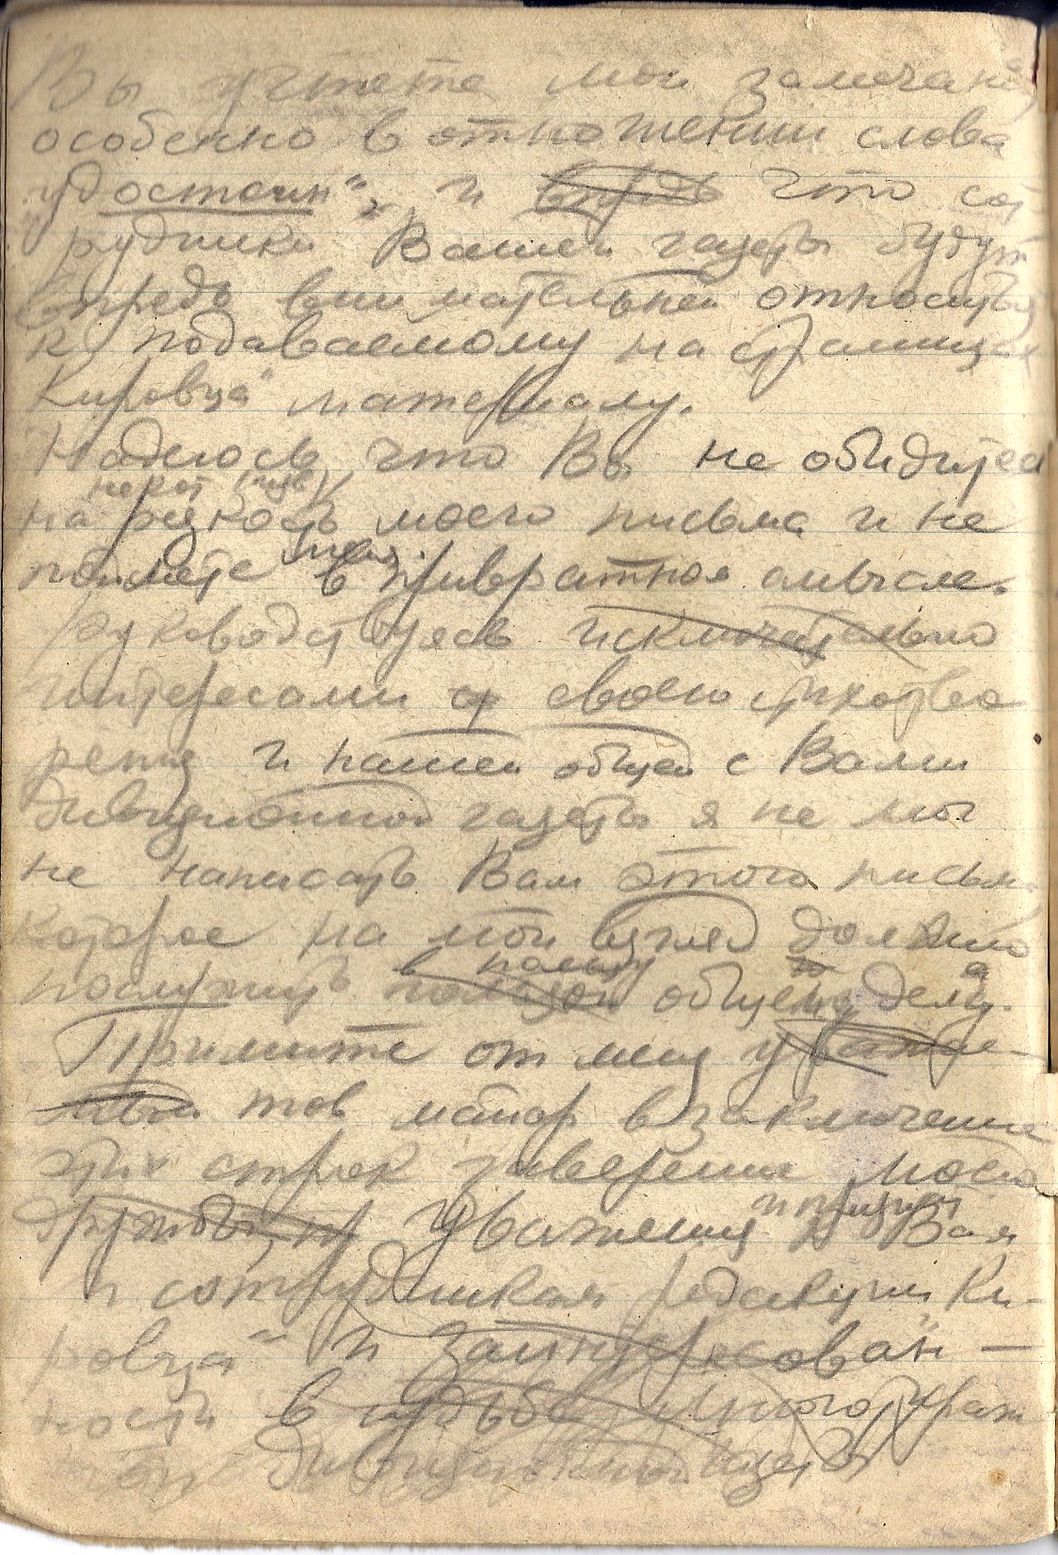 Вы учтете мои замечания
особенно в отношении слова
„удостоин“, и впредь что сот
рудники Вашей газеты будут
впредь внимательней относиться
к подаваемому на страницах
Кировца“ материалу.
Надеюсь что Вы не обидитесь
некот
на резкость моего письма и не
поймете в превратном смысле.
Руководствуясь исключительно
интересами своего стихотво
рения и нашей общей с Вами
дивизионной газеты я не мог
не написать Вам этого письма
которое на мой взгляд должно
в пользу
послужить общему делу.
Примите от меня
тов майор в заключение
этих строк уверения моего
уважения к Вам
и сотрудникам редакции Ки-
ровца“ и заинтересован-
ности в судьбе
дивизионной газеты